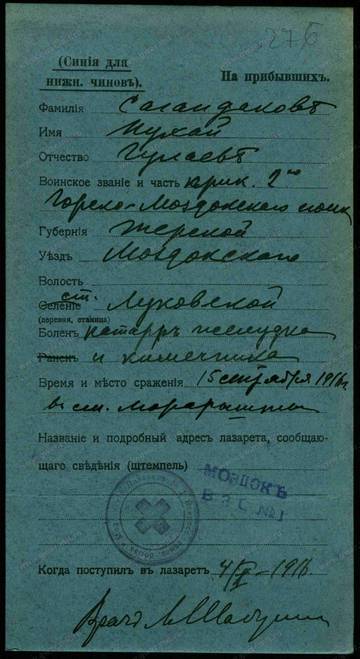 276
(Синія для
нижн. чиновъ).
На прибывшихъ.
Фамилія Сагандаковъ
Имя Мухай
Отчество
Воинское званіе и часть прик. 2го
Горско-Моздокскаго полк
Губернія Терской
Уѣздъ Моздокскаго
Волость
Селеніе ст. Луковской
(деревня, станица)
Боленъ катарръ желудка
Раненъ и кишечника
Время и мѣсто сраженія 15 сентября 1916г.
в ст.
Названіе и подробный адресъ лазарета, сообщаю-
щаго свѣдѣнія (штемпель)
МОЗДОКЪ
В. З. С. №1
Когда поступилъ въ лазаретъ 4/X-1916.
Врачъ